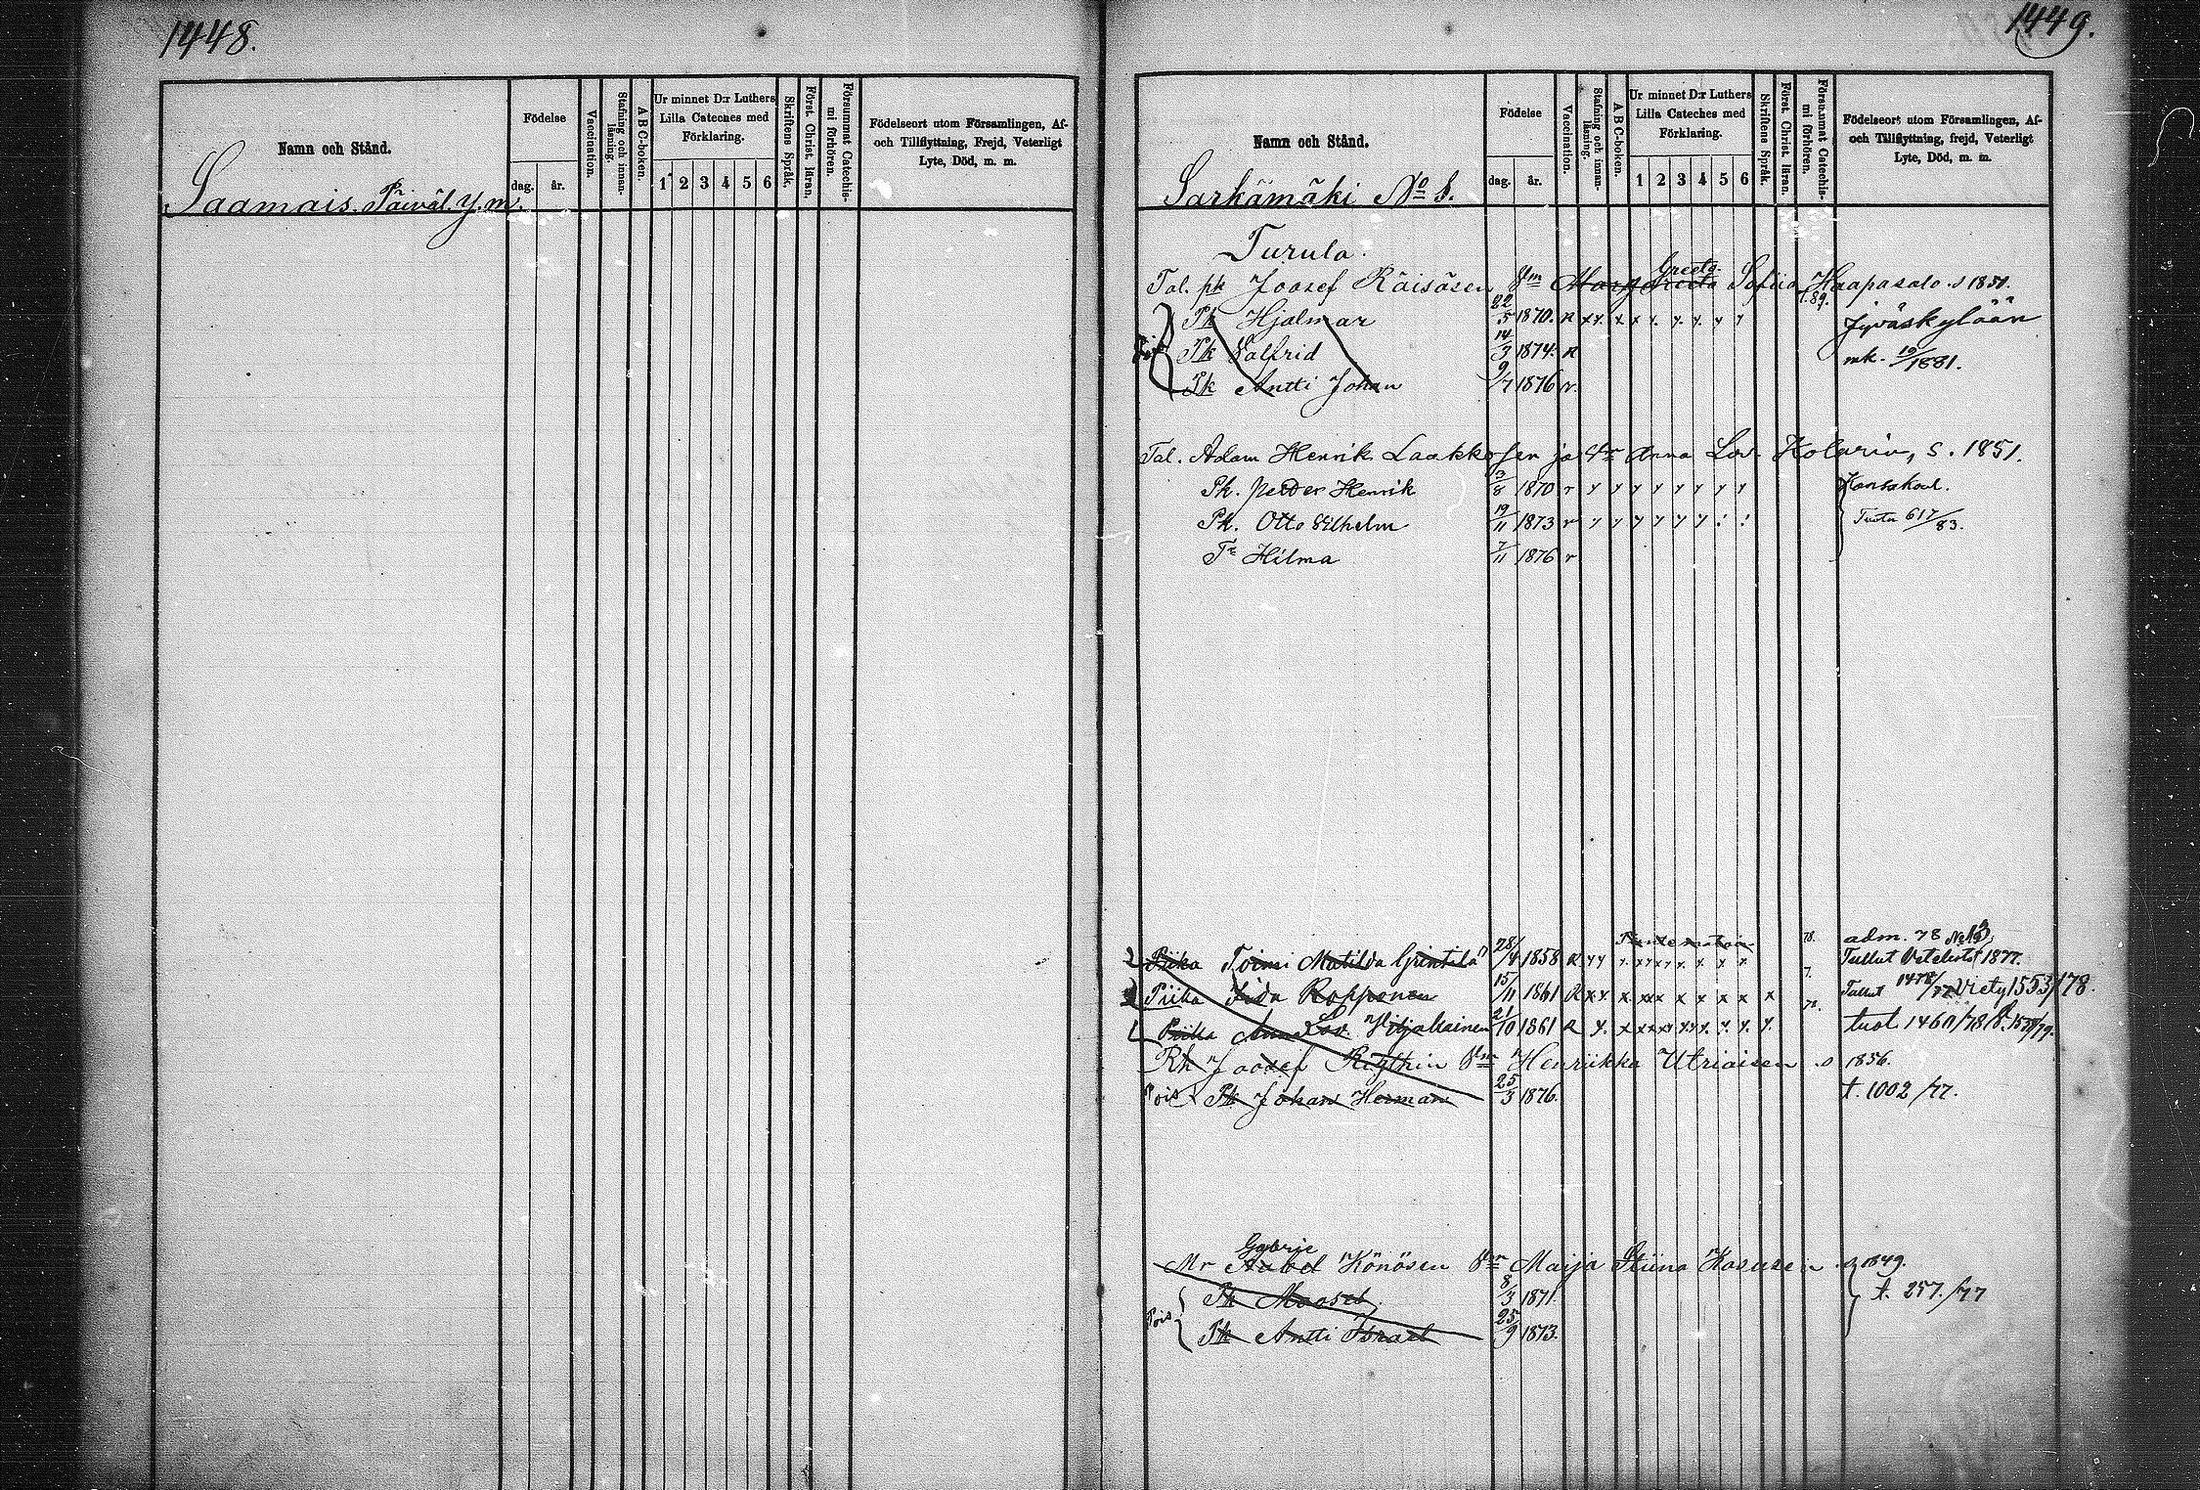 1448.
Namn och Stånd.
Födelse
dag.
år.
Vaccination.
Stafning och innanläsning.
A B C-boken.
Ur minnet D:r Luthers
Lilla Cateches med
Förklaring.
1 2 3 4 5 6
Skriftens Språk.
Först. Christ. läran.
Försummat Catechismi förhören.
Födelseort utom Församlingen, Af-
och Tillflyttning, Frejd, Veterligt
Lyte, Död, m. m.
Saamais. Päiväl. y. m.
1449.
Namn och Stånd.
Födelse
dag.
år.
Vaccination.
Stafning och innanläsning.
A B C-boken.
Ur minnet D:r Luthers
Lilla Cateches med
Förklaring.
1 2 3 4 5 6
Skriftens Språk.
Först. Christ. läran.
Försummat Catechismi förhören.
Födelseort utom Församlingen, Af-
och Tillflyttning, frejd, Veterligt
Lyte, Död, m. m.
Särkämäki No
Turula.
Greeta
Tal. pk Joosef Räisäsen Vm Sofiia Haapasalo. s 1851.
Pk Hjalmar 22/5 1870. R x x x x y. y. y. y y t.89. Jyväskylään
Pois Pk Salfrid 14/3 1874. R mk. 19/1881.
Pk Antti Johan 9/7 1876 r.
Tal. Adam Henrik Laakkosen ja Vm Anna Lov. Kolarin, s. 1851.
Pk. Petter Henrik 3/8 1870 r y y y y y y y y Kansakoul.
Pk. Otto Vilhelm 19/11 1873 r y y y y y y ! ! Tuotu 617/83.
Tr Hilma 7/11 1876 r
78. adm. 78
Piika Toimi Matilda 28/4 1858 R Tullut 1877.
Piika Iida Ropponen 15/11 1861 R Tullut 1478/77 Viety 1553/78.
Piika Anna Lov. 21/10 1861 R tuot 1460/78
Rk Joosef Vm Henriikka Utriaisen s 1856.
Pois Pk Johan Herman 25/3 1876. t. 1002/77.
Mr Könösen Vm Maija Stiina Kasusen s 1849.
Pk Mooses 8/3 1871. t. 257./77
Pois Pk Antti Israel 25/9 1873.